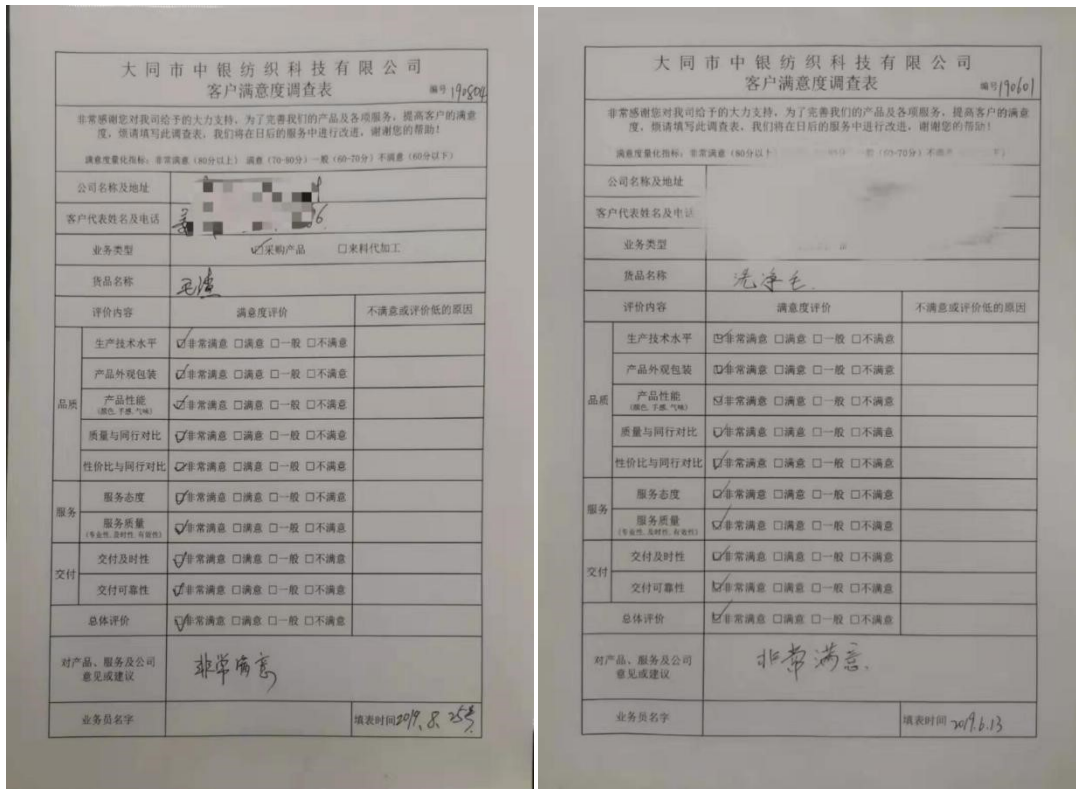 大同市中银纺织科技有限公司
客户满意度调查表
编号190804
非常感谢您对我司给予的大力支持，为了完善我们的产品及各项服务，提高客户的满意
度，烦请填写此调查表，我们将在日后的服务中进行改进，谢谢您的帮助！
满意度量化指标：非常满意（80分以上） 满意（70-80分）一般（60-70分）不满意（60分以下）
公司名称及地址
客户代表姓名及电话
业务类型 ☑采购产品 □来料代加工
货品名称 毛渣
评价内容 满意度评价 不满意或评价低的原因
品质
生产技术水平 ☑非常满意 □满意 □一般 □不满意
产品外观包装 ☑非常满意 □满意 □一般 □不满意
产品性能 ☑非常满意 □满意 □一般 □不满意
（颜色,手感,气味）
质量与同行对比 ☑非常满意 □满意 □一般 □不满意
性价比与同行对比 ☑非常满意 □满意 □一般 □不满意
服务
服务态度 ☑非常满意 □满意 □一般 □不满意
服务质量 ☑非常满意 □满意 □一般 □不满意
（专业性,及时性,有效性）
交付
交付及时性 ☑非常满意 □满意 □一般 □不满意
交付可靠性 ☑非常满意 □满意 □一般 □不满意
总体评价 ☑非常满意 □满意 □一般 □不满意
对产品、服务及公司
意见或建议 非常满意
业务员名字 填表时间2019.8.25号
大同市中银纺织科技有限公司
客户满意度调查表
编号190601
非常感谢您对我司给予的大力支持，为了完善我们的产品及各项服务，提高客户的满意
度，烦请填写此调查表，我们将在日后的服务中进行改进，谢谢您的帮助！
满意度量化指标：非常满意（80分以上） 一般（60-70分）不满
公司名称及地址
客户代表姓名及电话
业务类型
货品名称 洗净毛
评价内容 满意度评价 不满意或评价低的原因
品质
生产技术水平 ☑非常满意 □满意 □一般 □不满意
产品外观包装 ☑非常满意 □满意 □一般 □不满意
产品性能 ☑非常满意 □满意 □一般 □不满意
（颜色,手感,气味）
质量与同行对比 ☑非常满意 □满意 □一般 □不满意
性价比与同行对比 ☑非常满意 □满意 □一般 □不满意
服务
服务态度 ☑非常满意 □满意 □一般 □不满意
服务质量 ☑非常满意 □满意 □一般 □不满意
（专业性,及时性,有效性）
交付
交付及时性 ☑非常满意 □满意 □一般 □不满意
交付可靠性 ☑非常满意 □满意 □一般 □不满意
总体评价 ☑非常满意 □满意 □一般 □不满意
对产品、服务及公司
意见或建议 非常满意.
业务员名字 填表时间 2019.6.13